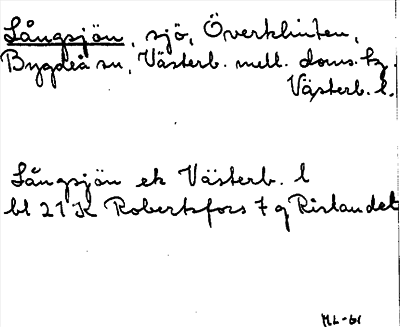 Långsjön, sjö, Överklinten,
Bygdeå sn, Västerb. mell. doms. hg.
Västerb. l.
Långsjön ek Västerb. l
bl 21 K Robertsfors 7 g Ristandet
ML-61